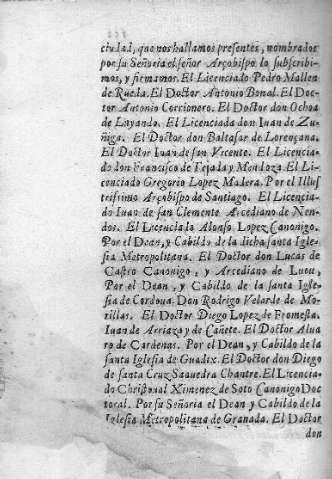 ciudad, que nos hallamos presentes, nombrados
por su Señoria el señor Arçobispo, lo subscribi-
mos, y firmamos. El Licenciado Pedro Mallen
de Rueda. El Doctor Antonio Bonal. El Doc-
tor Antonio Corrionero. El Doctor don Ochoa
de Luyando. El Licenciada don Iuan de Zu-
ñiga. El Doctor don Baltasar de Lorençana.
El Doctor Iuan de san Vicente. El Licencia-
do don Francisco de Tejada y Mendoza. El Li-
cenciado Gregorio Lopez Madera. Por el Illus
trissimo Arçobispo de Santiago. El Licencia-
do Iuan de san Clemente Arcediano de Nen-
dos. El Licenciado Alonso Lopez Canonigo.
Por el Dean, y Cabildo de la dicha santa Igle-
sia Metropolitana. El Doctor don Lucas de
Castro Canonigo, y Arcediano de
Por el Dean, y Cabildo de la santa Igle-
sia de Cordoua. Don Rodrigo Velarde de Mo-
rillas. El Doctor Diego Lopez de Fromesta.
Iuan de Arriaza y de Cañete. El Doctor Alua
ro de Cardenas. Por el Dean, y Cabildo de la
santa Iglesia de Guadix. El Doctor don Diego
de santa Cruz Saauedra Chantre. El Licencia-
do Christoual Ximenez de Soto Canonigo Doc
toral. Por su Señoria el Dean y Cabildo de la
Iglesia Metropolitana de Granada. El Doctor
don